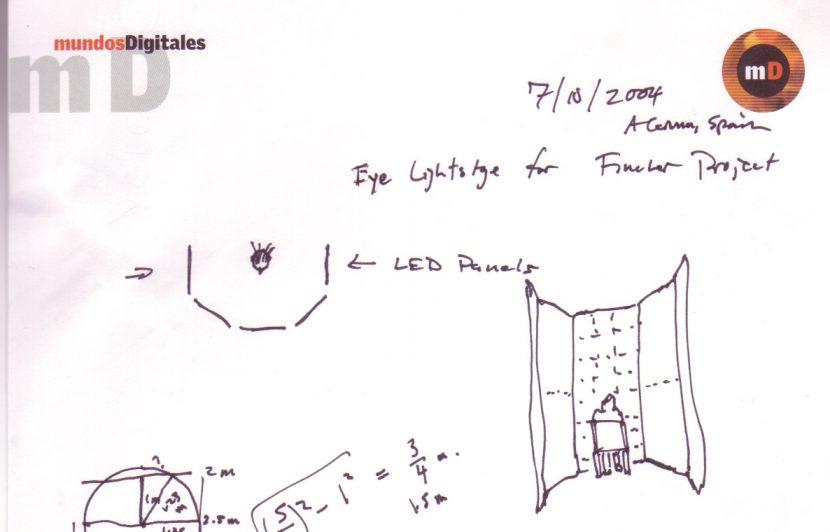 mundosDigitales
mD
mD
7/10/2004
A Coruna, Spain
Eye Lightstge for Fincher Project
← LED Panels
2 m
3/4 m.
1.5 m
1m
2.5 m